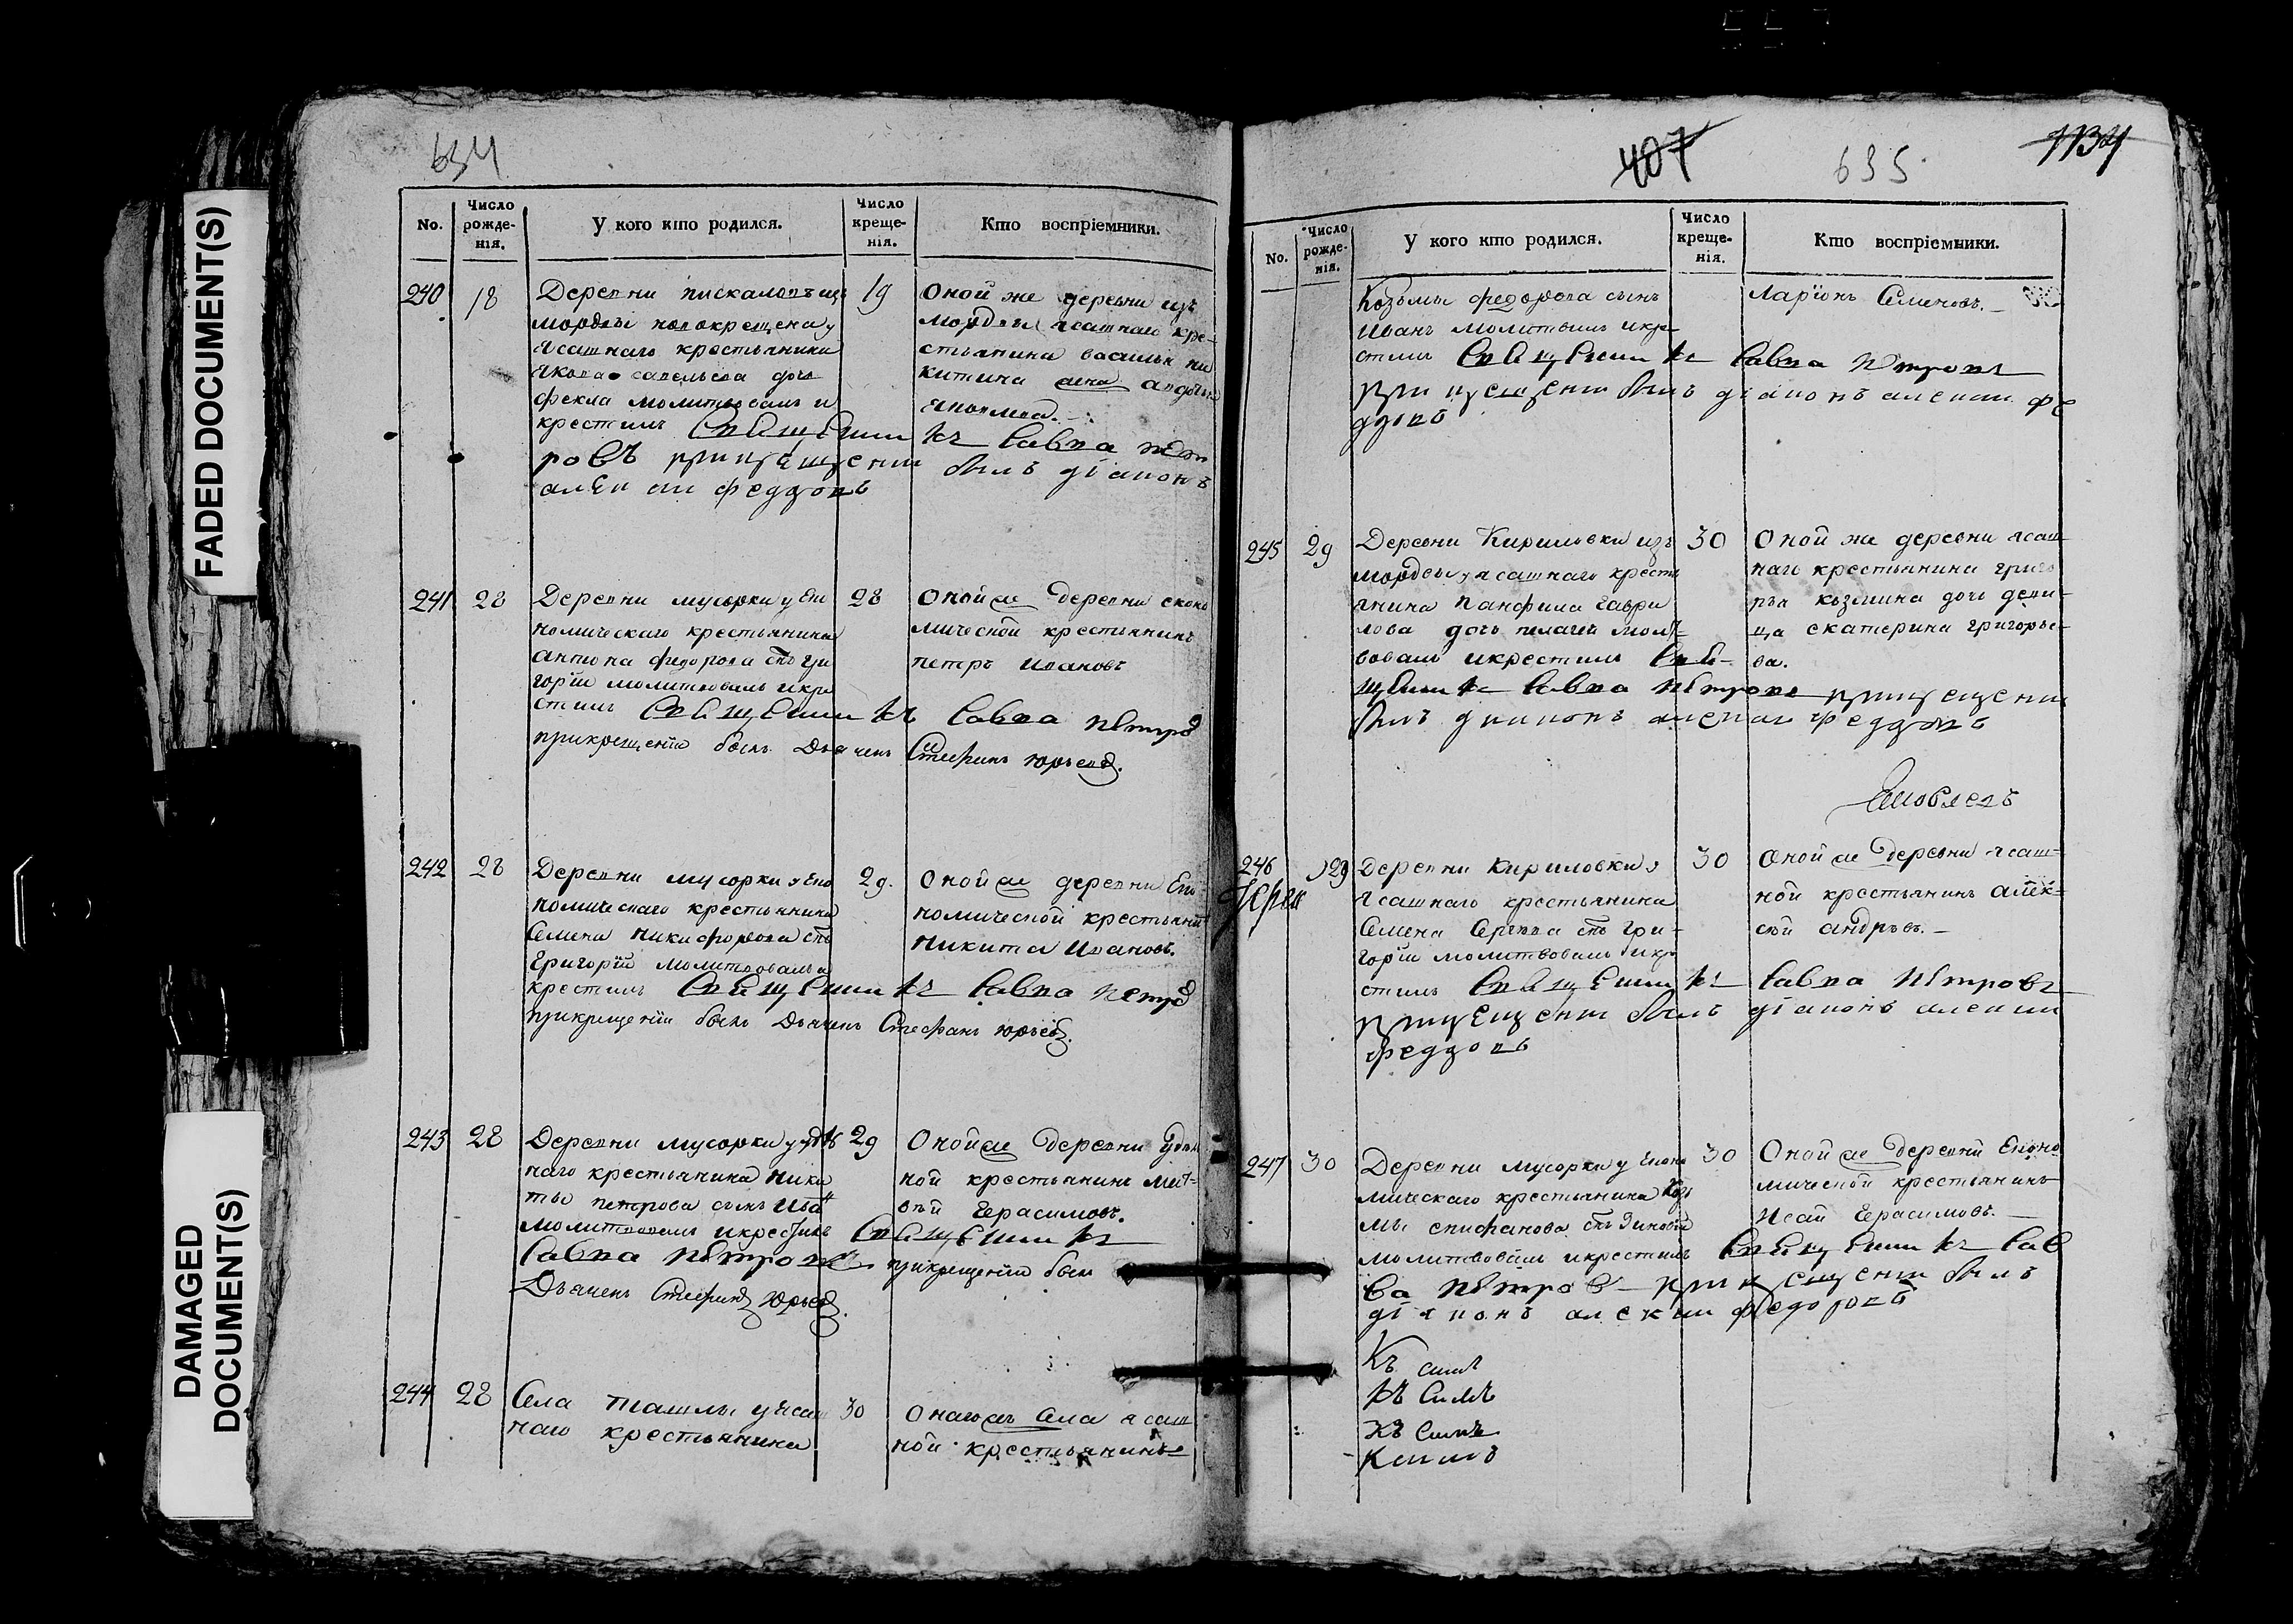 FADED DOCUMENT(S)
DAMAGED
DOCUMENT(S)
634
No.
Число
рожде-
нія.
У кого кто родился.
Число
креще-
нія.
Кто воспріемники.
240
18
Деревни пискаловъ изъ
мордвы новокрещена у
ясашнаго крестьянина
Якова савельева дочь
фекла молитвовалъ и
крестилъ Священникъ Савва Пет
ровъ при крещении былъ діаконъ
алексѣи феддоровъ
19
Оной же деревни изъ
мордвы ясашнаго кре-
стьянина васильи ни
китина жена авдотья
241
28
Деревни мусорки у Еко
номическаго крестьянина
антона федорова снъ гри
горій молитвовалъ и кре
стилъ Священникъ Савва Петро
при крещеніи былъ Дьячекъ Стефанъ Юрьевъ.
28
Оной же деревни еконо
мической крестьянинъ
петръ Ивановъ
242
28
Деревни мусорки у Еко
номическаго крестьянина
Семена Никифорова снъ
Григорій молитвовалъ и
крестилъ Священникъ Савва Петро
при крещеніи былъ Дьячекъ Стефанъ Юрьевъ.
29.
Оной же деревни Еко-
номической крестьянинъ
Никита Ивановъ.
243
28
Деревни мусорки у удѣль
наго крестьянина Ники
ты петрова сынъ Иванъ
молитвовалъ и крестилъ Священникъ
Савва Петровъ при крещеніи былъ
Дьячекъ Стефанъ Юрьевъ.
29
Оной же деревни удѣль
ной крестьянинъ Мат-
вѣй Герасимовъ.
244
28
Села Ташлы у ясаш
наго крестьянина
30
Онагожъ Села ясаш
ной крестьянинъ
407
635
1134
No.
Число
рожде-
нія.
У кого кто родился.
Число
креще-
нія.
Кто воспріемники.
Козьмы федорова сынъ
Иванъ молитвовалъ и кре
стилъ Священникъ Савва Петровъ
при крещении былъ діаконъ алексии фе
ддоровъ
Ларіонъ Семеновъ.
245
29
Деревни Кириловки изъ
мордвы у ясашнаго кресть
янина Панфила Гаври
лова дочь пелагея молит-
вовалъ и крестилъ Свя-
щенникъ Савва Петровъ при крещении
былъ диаконъ алексии феддоровъ
30
Оной же деревни ясаш-
наго крестьянина григо
рья козмина дочь деви-
ца екатерина григорье-
ва.
Яковлевъ
246
29
Деревни Кириловки у
ясашнаго крестьянина
Семена Сергѣева снъ Гри-
горій молитвовалъ и кре
стилъ Священникъ Савва Петровъ
при крещении былъ діаконъ алексии
феддоровъ
30
Оной же деревни ясаш-
ной крестьянинъ алек-
сѣй андрѣевъ.
247
30
Деревни мусорки у Еконо
мическаго крестьянина Козь
мы епифанова снъ Зиновей
молитвовалъ и крестилъ Священникъ Сав
ва Петровъ при крещении былъ
діаконъ алексии федоровъ
30
Оной же деревни Еконо
мической крестьянинъ
Исай Герасимовъ.
Къ симъ
Къ Симъ
Къ Симъ
Къ симъ